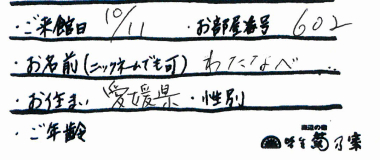 ・ご来館日 10/11 ・お部屋番号 602
・お名前(ニックネームでも可) わたなべ
・お住まい 愛媛県 ・性別
・ご年齢
渡辺の宿
菊乃家